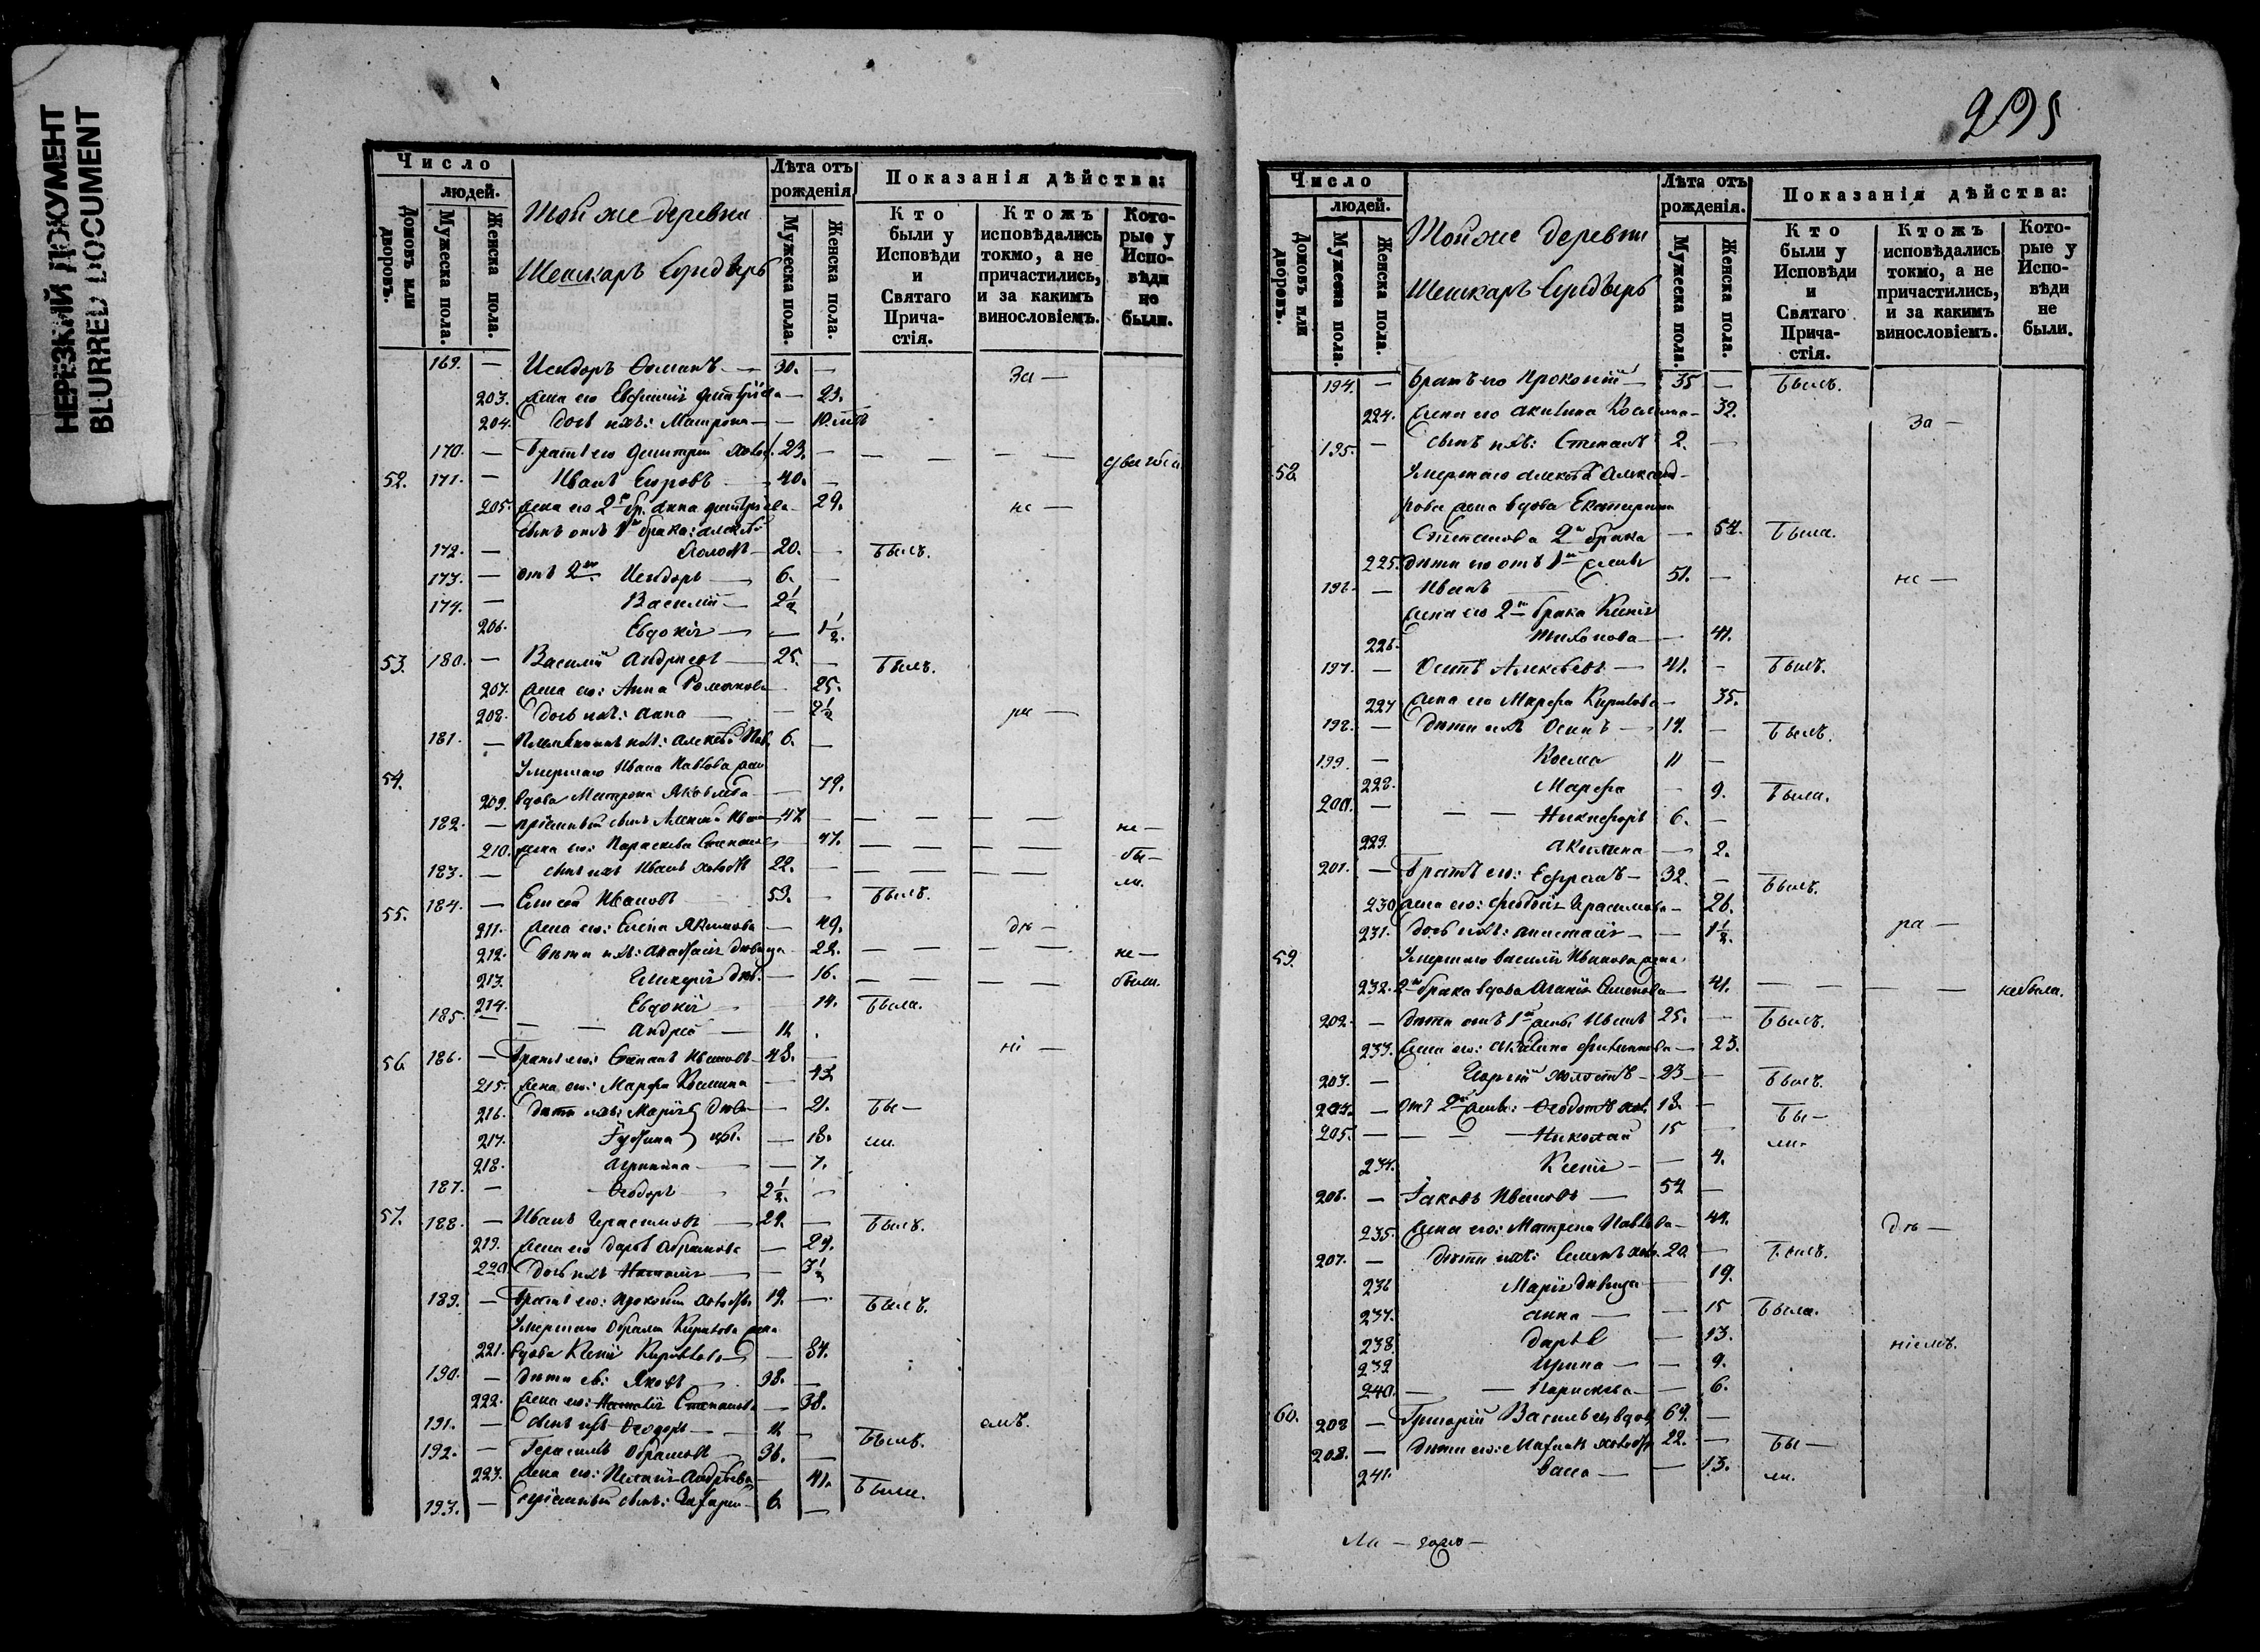 НЕРЕЗКИЙ ДОКУМЕНТ
BLURRED DOCUMENT
Число
людей.
Домовъ или дворовъ.
Мужеска пола.
Женска пола.
Тойже деревни
Шешкаръ Сундырь
Лѣта отъ рожденія
Мужеска пола.
Женска пола.
Показанія дѣйства:
Кто были у Исповѣди и Святаго Прича-стія.
Ктожъ исповѣдались токмо, а не причастились, и за какимъ винословіемъ.
Кото-рые у Испо-вѣди не были.
169. — 30. — За —
203. жена его Дмитріева — 23.
204. дочь ихъ: Матрона —
170. — Братъ его Димитрій 23. —
52. 171. — Иванъ Егоровъ — 40. —
205. жена его 2 бр. Анна Дмитріева — 29. не —
сынъ отъ 1 брака:
172. — 20. — былъ.
173. — отъ 2 Исидоръ — 6. —
174. — Василій — 2½
206. Евдокія — — 1½.
53. 180. — Василій Андреевъ — 25. — былъ.
207. жена его: Анна Романова 25.
208. дочь ихъ: Анна — — 2½ ра —
181. — Племянникъ ихъ: Алексѣй 6. —
54. Умершаго Ивана Павлова жена
209. вдова Матрона Яковлева — 79.
182. — пріемный сынъ 47 — — — — — не —
210. жена его: Параскева — 47. — — — — бы —
183. — сынъ ихъ Иванъ 22. — — — — — ли.
55. 184. — Елисей Ивановъ 53. — былъ.
211. жена его: Елена Якимова — 49. дѣ —
212. дѣти ихъ: Анастасія дѣвица — 22. — — — — не —
213. Гликерія дѣв. — 16. — — — — были.
214. Евдокія — 14. была.
185. — — — Андрей — 12 .
56. 186. — Братъ его: Степанъ Ивановъ — 48. — ні —
215. жена его: Марфа Козмина — 43.
216. дѣти ихъ: Марія дѣви — 21. бы —
217. Іустина цы. — 18. ли.
218. Агрипина — — 7.
187. — Ѳеодоръ 2½. —
57. 188. — Иванъ Герасимовъ — 29. — былъ.
219. жена его Дарья Абрамова — 27.
220. дочь ихъ Наталія — — 3½
189. — Братъ его: Прокопій 19. — былъ.
Умершаго Абрама Кирилова жена
221. вдова Ксенія Кирилова — 84.
190. — дѣти ея: Яковъ 38. —
222. жена его: Наталія Степанова — 38.
191. — сынъ ихъ Ѳеодоръ — 12 — емъ.
192. — Герасимъ Абрамовъ 36. — былъ.
223. жена его: Пелагія Андреева — 41. были.
193. — пріемный сынъ: Захарій — 6. —
295
Число
людей.
Домовъ или дворовъ.
Мужеска пола.
Женска пола.
Тойже деревни
Шешкаръ Сундырь
Лѣта отъ рожденія.
Мужеска пола.
Женска пола.
Показанія дѣйства:
Кто были у Исповѣди и Святаго Прича-стія.
Ктожъ исповѣдались токмо, а не причастились, и за какимъ винословіемъ.
Кото-рые у Испо-вѣди не были.
194. — братъ его Прокопій — 35 — былъ.
224. жена его Акилина Козмина — 32. За —
195. — сынъ ихъ: Степанъ 2. —
58. Умершаго Алексѣя Александ-
рова жена вдова Екатерина
Степанова 2 брака — 54. была.
225. дѣти его отъ 1 жены
196. — Иванъ 51. — не —
жена его 2 брака Ксенія
226. Тихонова — 41.
197. — Осипъ Алексѣевъ — 41. — былъ.
227 жена его Марфа Кирилова — 35.
198. — дѣти ихъ Осипъ — 14. — былъ.
199. — Козма 11 —
228. Марфа — 9. была.
200. — — — Никифоръ 6. —
229. Акилина — 2.
201. — Братъ его: Ефремъ — 32. — былъ.
230 жена его: Ѳеодосія Герасимова — 26.
231. дочь ихъ: Анастасія — — 1½. ра —
59. Умершаго Василія Иванова жена
232. 2 брака вдова Агапія Семенова — 41. — — — — небыла.
202. — дѣти отъ 1 жены Иванъ 25. — былъ.
233. жена его: Филипова — 23.
203. — Георгій холостъ — 23 — былъ.
204. — отъ 2 жены: Ѳедотъ хол. 18. — бы —
205. — — — — Николай 15 — ли.
234. Ксенія — — 4.
206. — Іаковъ Ивановъ — 54 —
235. жена его: Матрена Павлова — 44. дѣ —
207. — дѣти ихъ: Семенъ хол. 20. — былъ.
236 Марія дѣвица 19.
237. Анна — — 15 была.
238. Дарья — 13. ніемъ.
239 Ирина — — 9.
240. — — Параскева — — 6.
60. 208 — Григорій Васильевъ вдов 64. —
208. — дѣти его: 22. — бы —
241. Васса — — 13. ли.